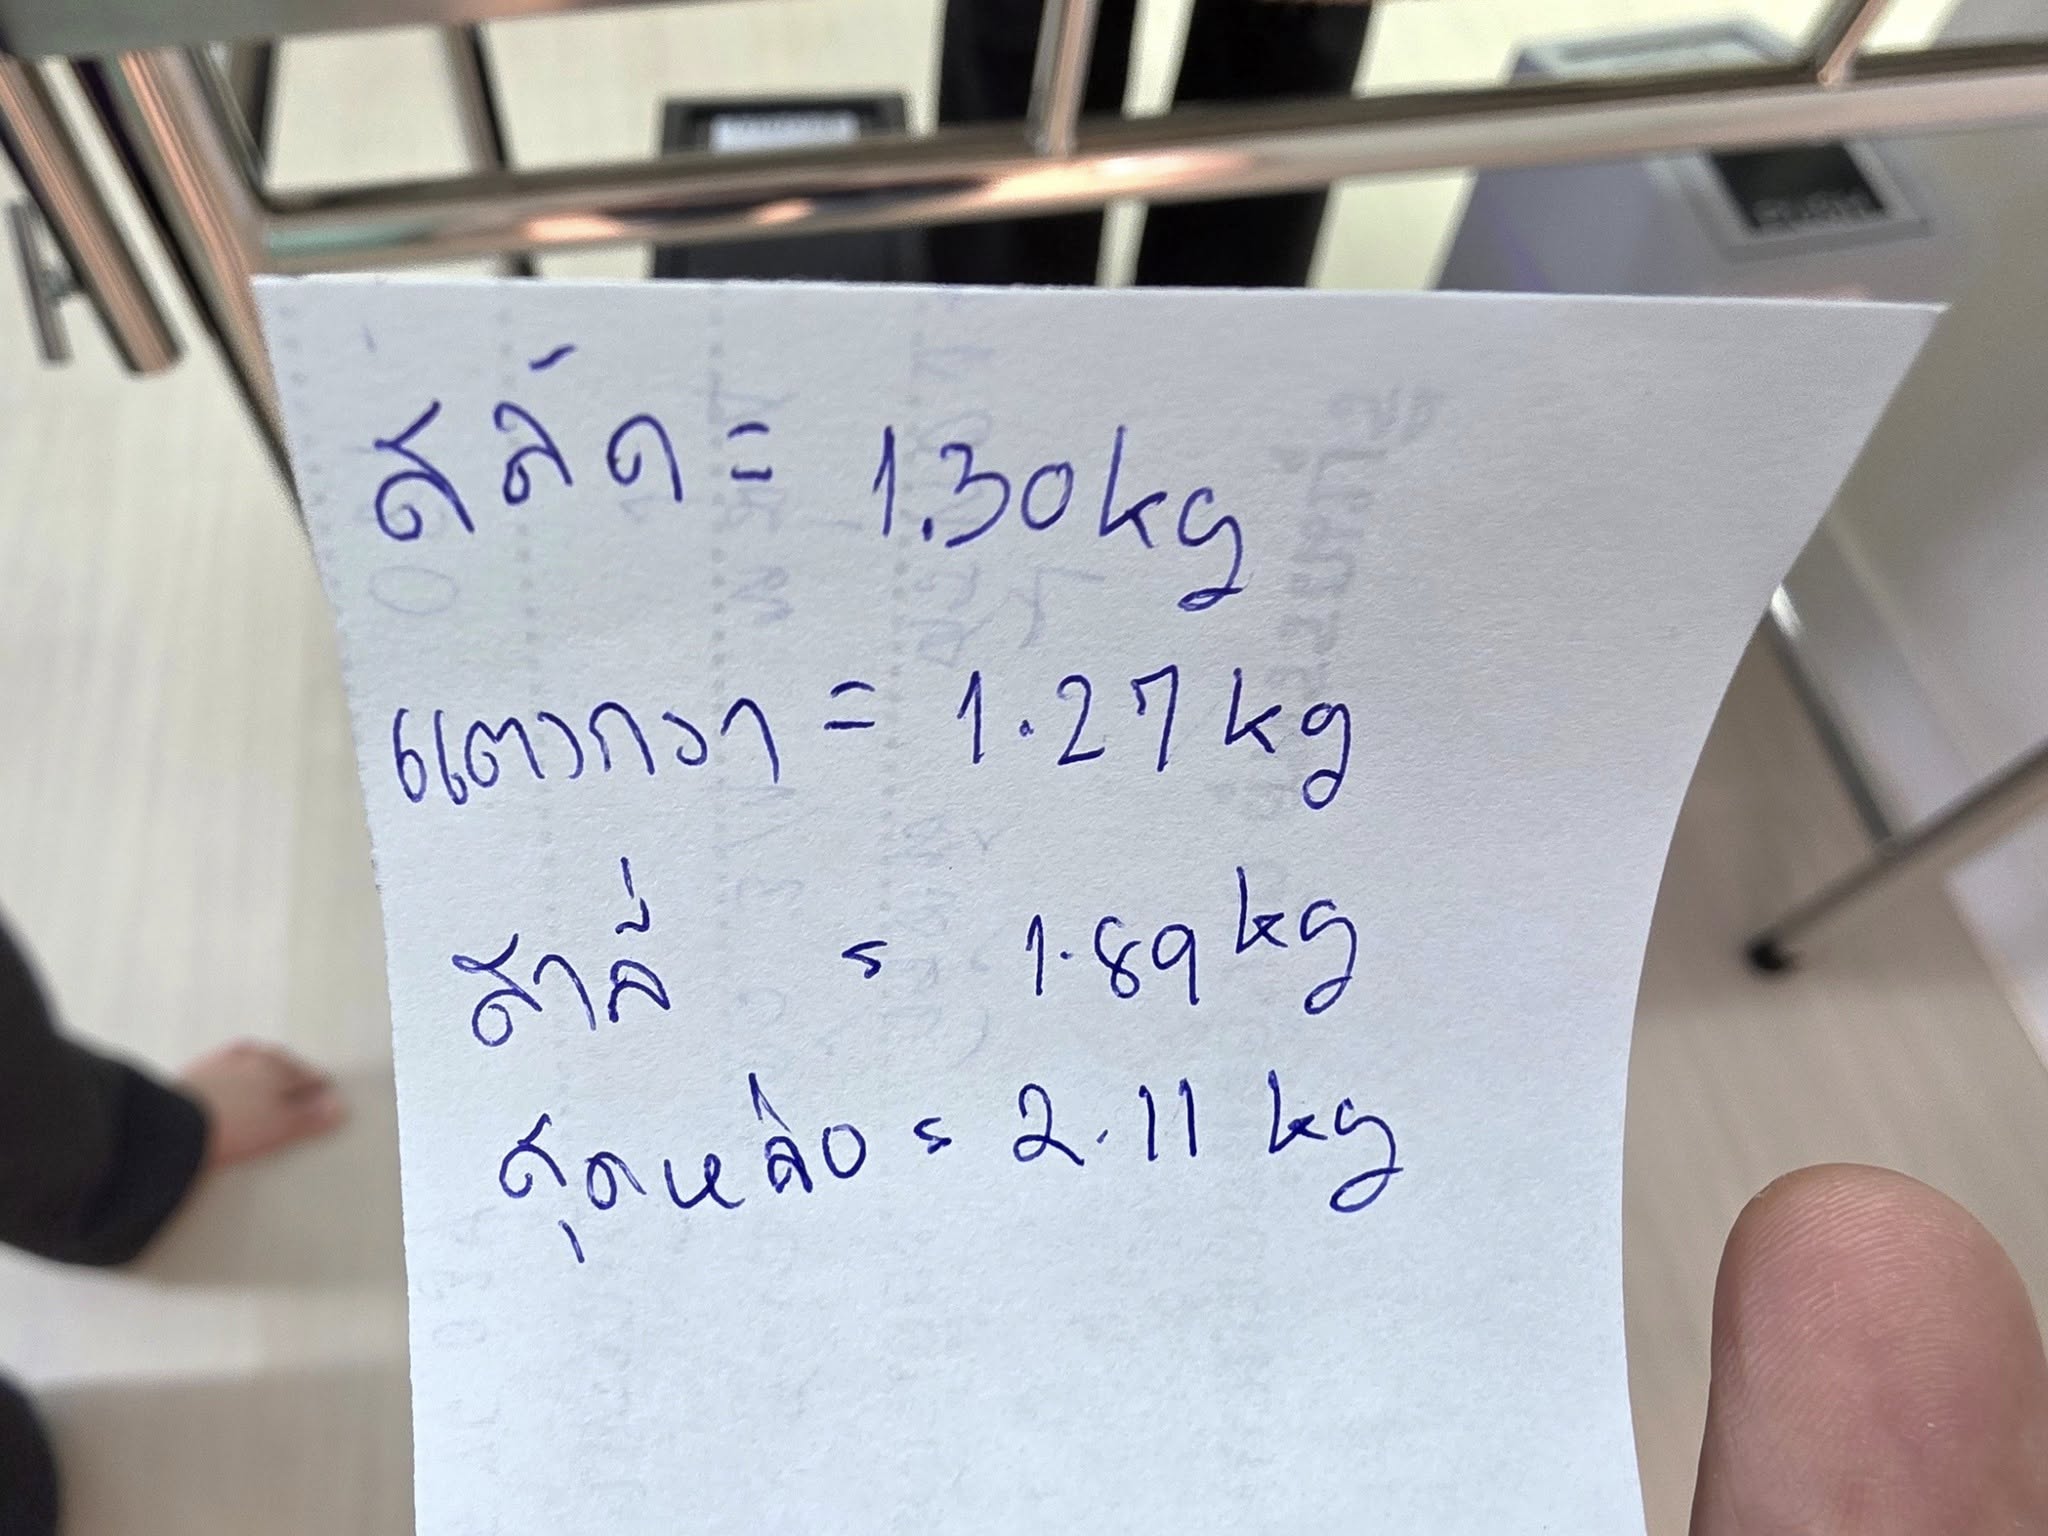 สลัด = 1.30 kg
แตงกวา = 1.27 kg
สาลี่ = 1.89 kg
สุดหล่อ = 2.11 kg